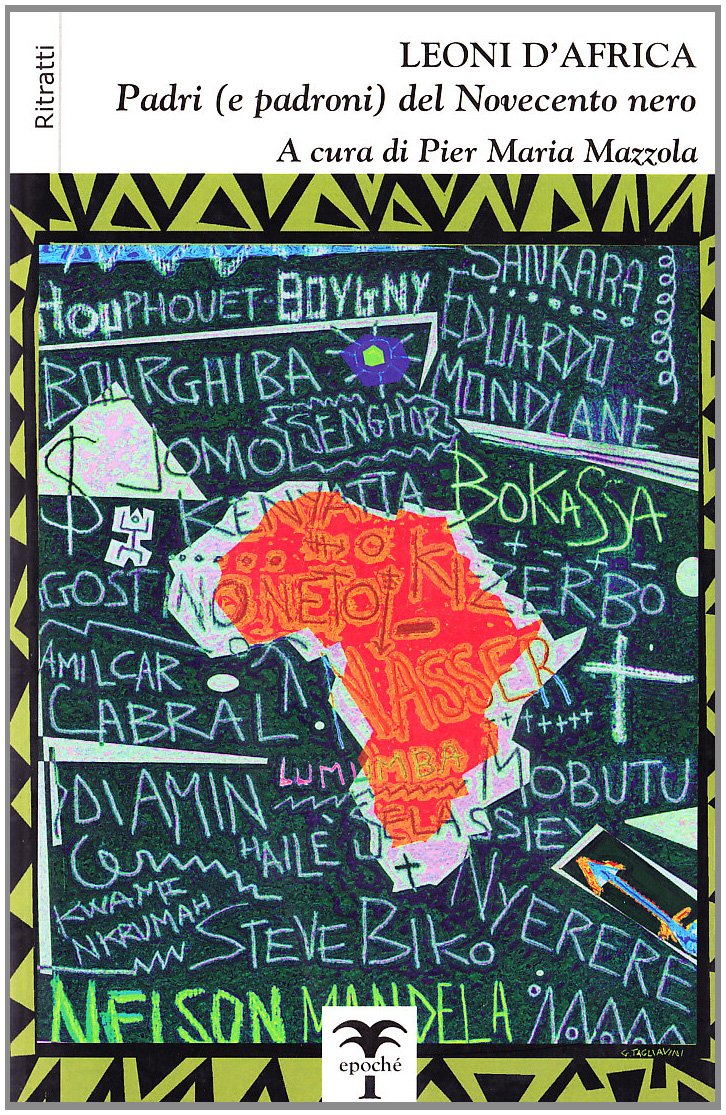 Ritratti
LEONI D'AFRICA
Padri (e padroni) del Novecento nero
A cura di Pier Maria Mazzola
SANKARA
HOUPHOUET-BOYGNY
EDUARDO
MONDLANE
BOURGHIBA
SENGHOR
JOMO
KENYATTA
BOKASSA
AGOSTINO NETO
KI ZERBO
AMILCAR
CABRAL
NASSER
LUMUMBA
MOBUTU
IDI AMIN
HAILÈ SELASSIE
KWAME
NKRUMAH
STEVE BIKO
NYERERE
NELSON MANDELA
G. TAGLIAVINI
epoché